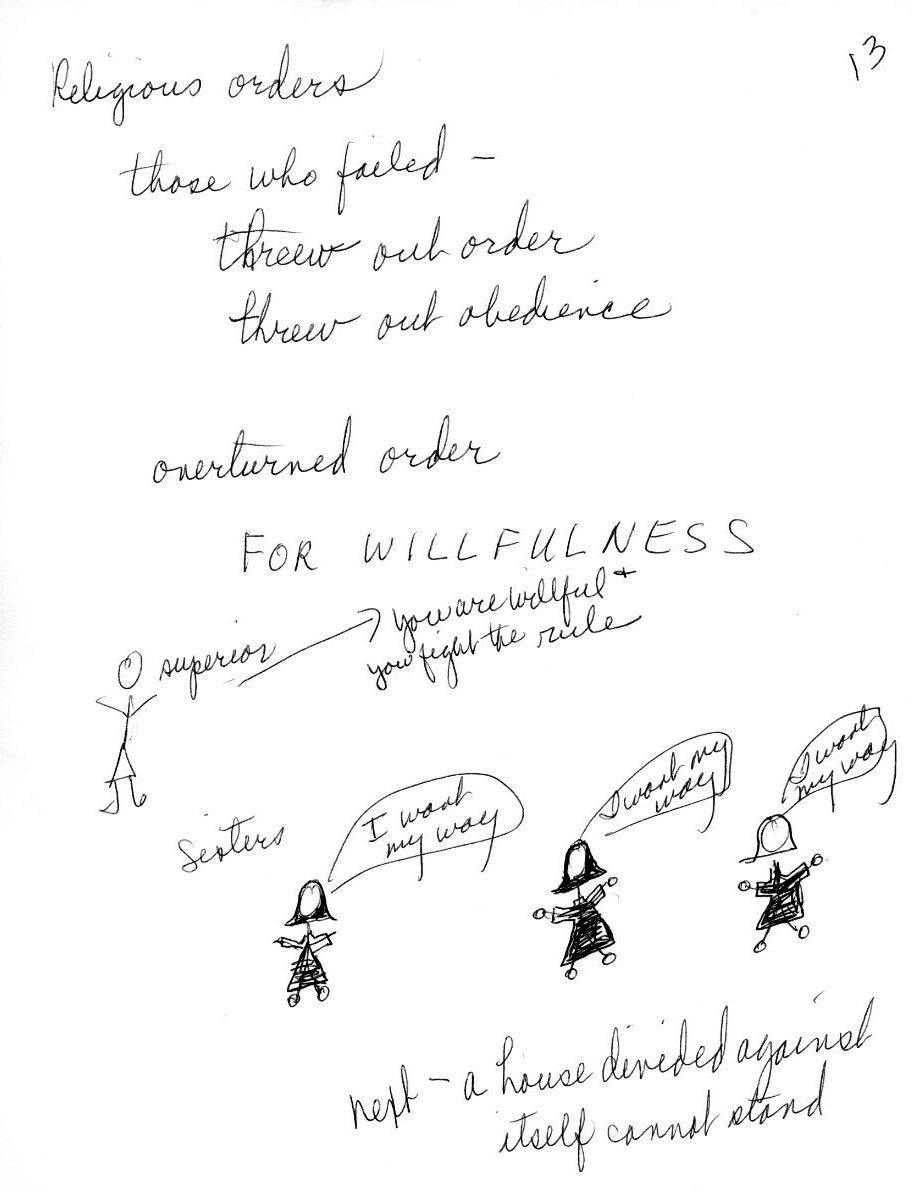 13
Religious orders
those who failed -
threw out order
threw out obedience
overturned order
FOR WILLFULNESS
you are willful +
you fight the rule
superior
I want
my way
I want my
way
I want
my way
Sisters
next - a house divided against
itself cannot stand